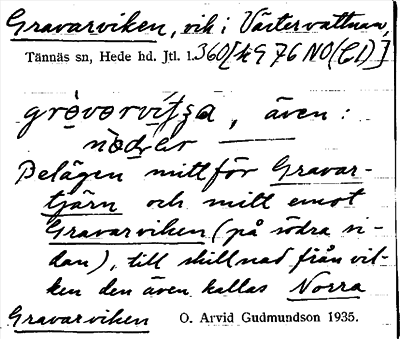 Gravarviken, vik i Västervattnan,
Tännäs sn, Hede hd. Jtl. 1. 360 [kG 76 NO (C1)]
även:
Belägen mitt för Gravar-
tjärn och mitt emot
Gravarviken (på södra si-
dan), till skillnad från vil-
ken den även kallas Norra
Gravarviken O. Arvid Gudmundson 1935.